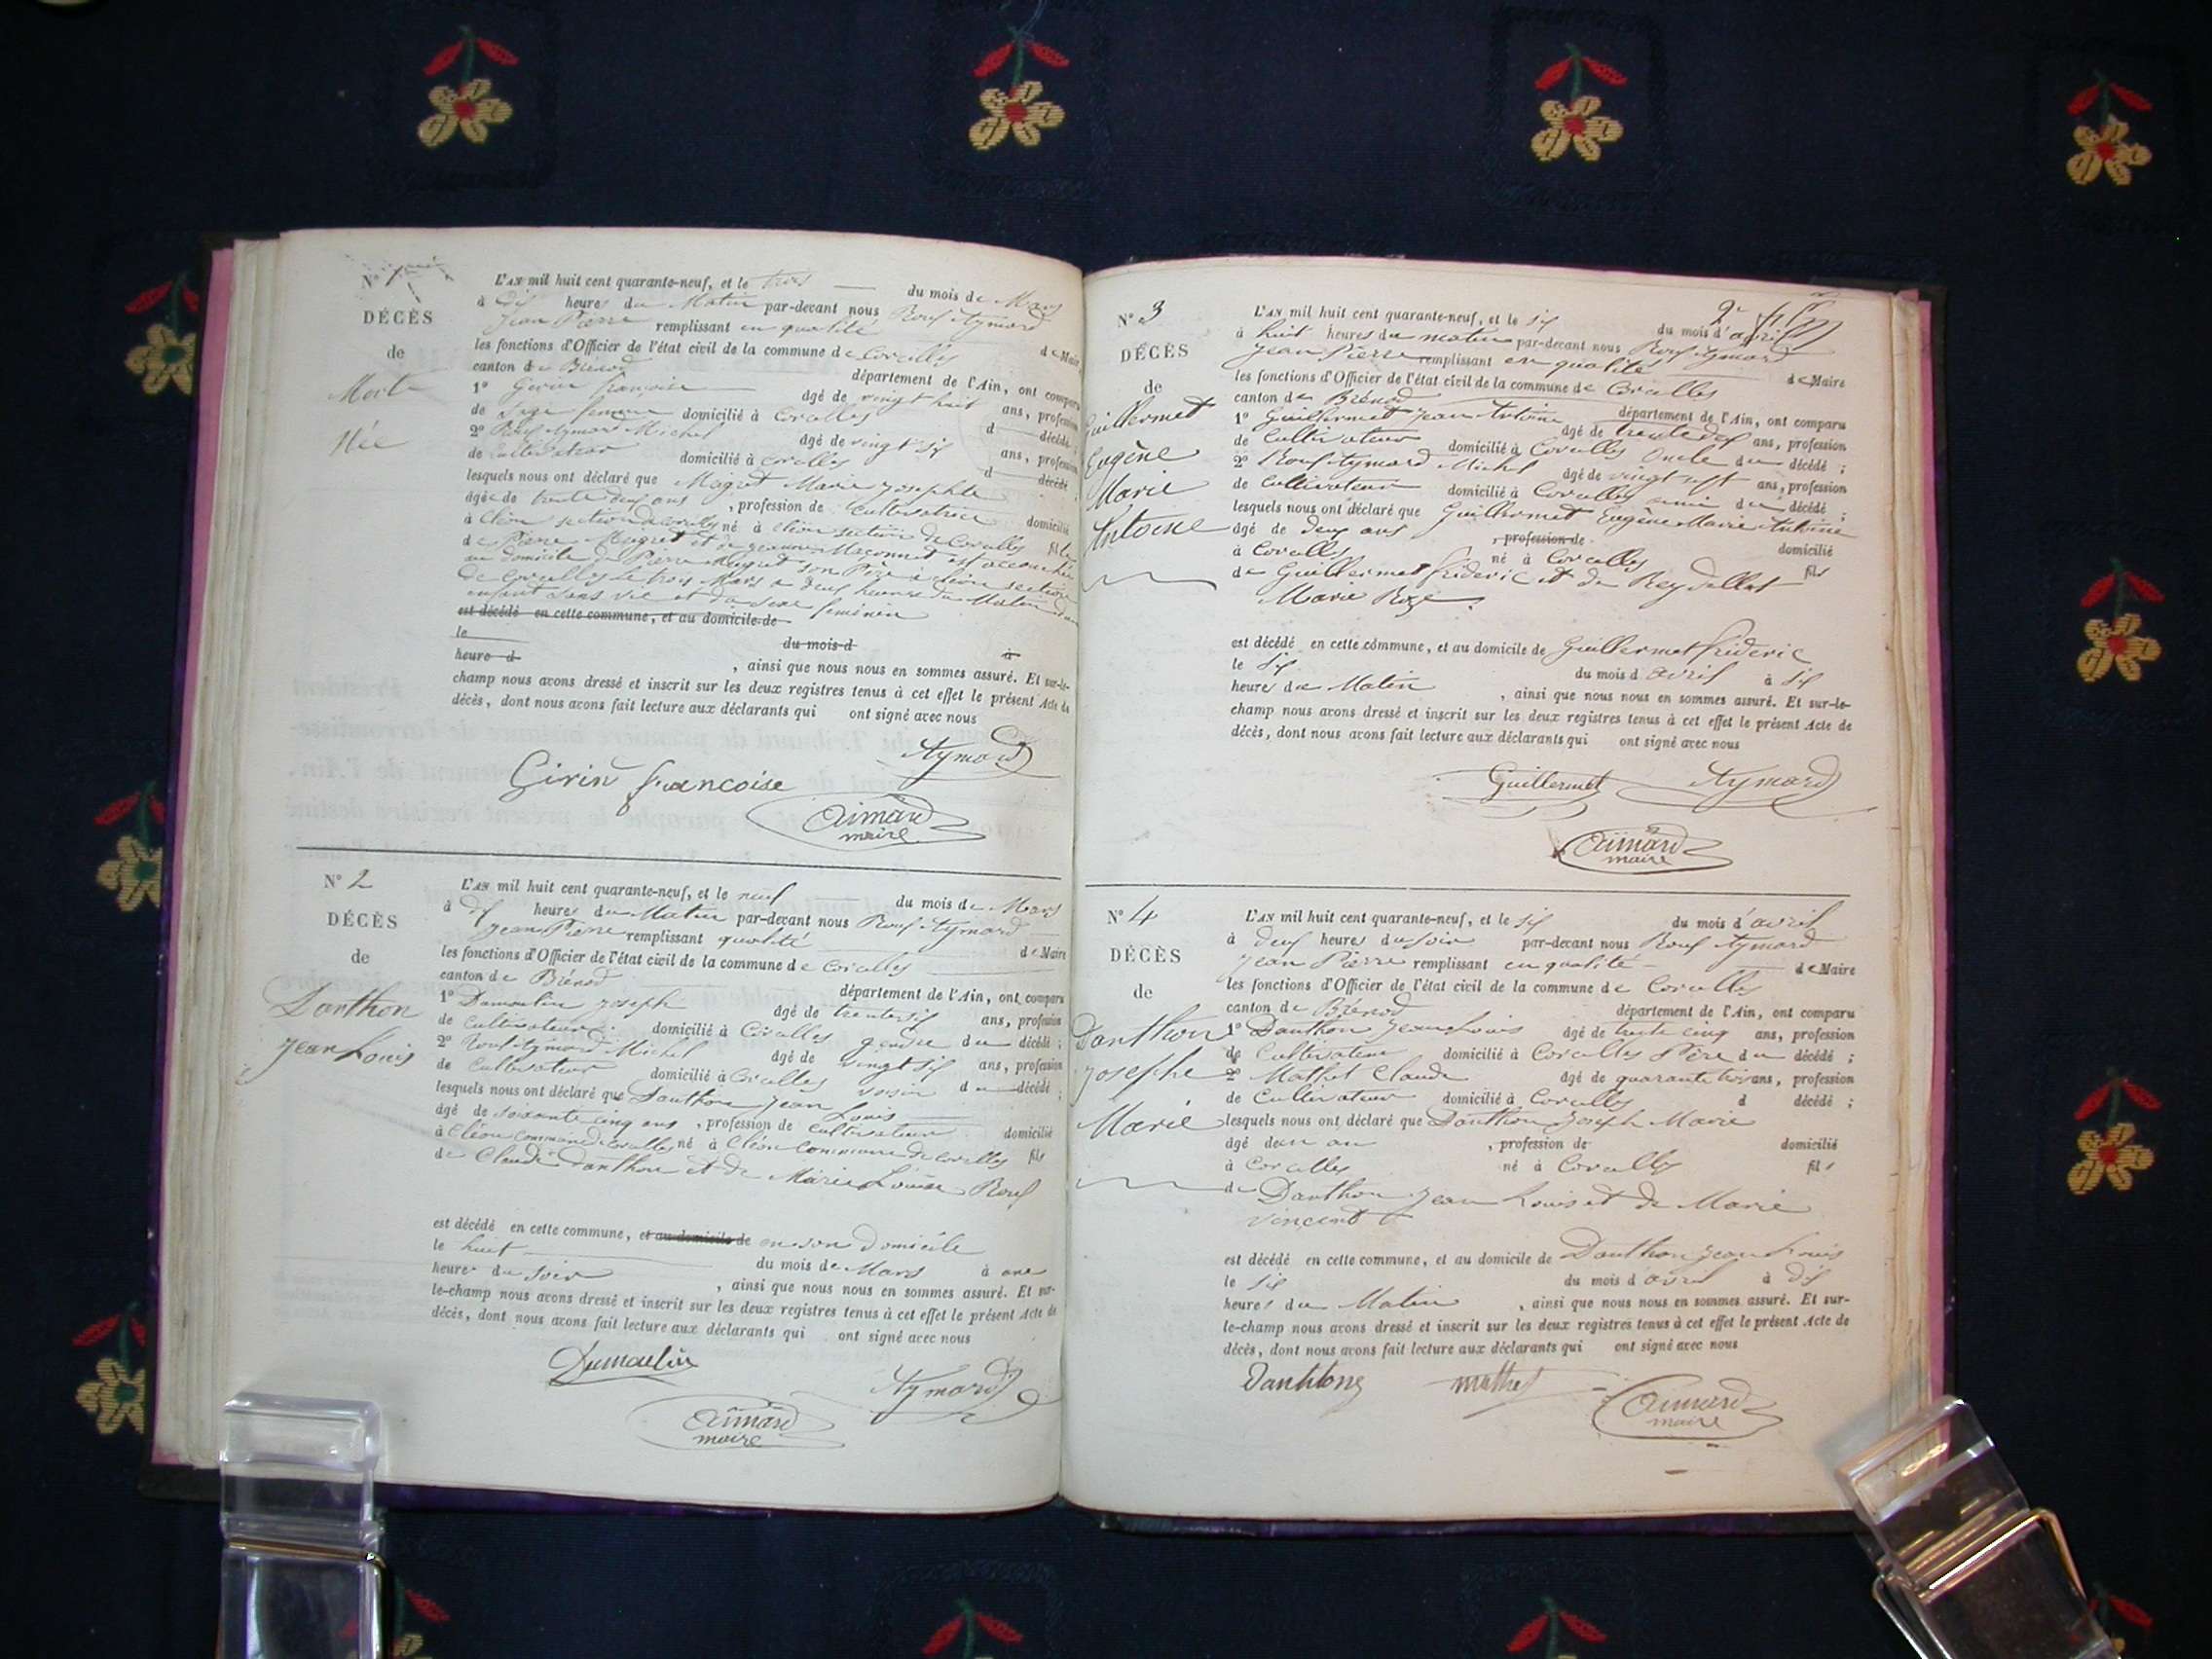 N° 1
DÉCÈS
de
Morte
Née
L'AN mil huit cent quarante-neuf, et le trois du mois de Mars
à dix heures du Matin par-devant nous Roux Aymard
Jean Pierre remplissant en qualité de Maire
les fonctions d'Officier de l'état civil de la commune de Corcelles
canton de Brénod département de l'Ain, ont comparu
1° Girin françoise âgé de vingt huit ans, profession
de sage femme domicilié à Corcelles d décédé
2° Roux Aymard Michel âgé de vingt six ans, profession
de cultivateur domicilié à Corcelles d décédé
lesquels nous ont déclaré que Magret Marie Josephte
âgée de trente deux ans, profession de Cultivatrice domicilié
à Cléon section de Corcelles né à Cléon section de Corcelles fille
de Pierre Magret et de Jeanne Maconnet est accouchée
au domicile de Pierre Magret son Père à Cléon section
de Corcelles le trois Mars à deux heures du Matin d'un
enfant sans vie et du sexe feminin
est décédé en cette commune, et au domicile de
le du mois d à
heure d , ainsi que nous nous en sommes assuré. Et sur-le-
champ nous avons dressé et inscrit sur les deux registres tenus à cet effet le présent Acte de
décès, dont nous avons fait lecture aux déclarants qui ont signé avec nous
Aymard
Girin francoise
aimard
maire
N° 2
DÉCÈS
de
Danthon
Jean Louis
L'AN mil huit cent quarante-neuf, et le neuf du mois de Mars
à dix heures du Matin par-devant nous Roux Aymard
Jean Pierre remplissant qualité de Maire
les fonctions d'Officier de l'état civil de la commune de Corcelles
canton de Brénod département de l'Ain, ont comparu
1° Dumoulin Joseph âgé de trente six ans, profession
de Cultivateur domicilié à Corcelles gendre du décédé ;
2° Roux Aymard Michel âgé de vingt six ans, profession
de Cultivateur domicilié à Corcelles voisin du décédé ;
lesquels nous ont déclaré que Danthon Jean Louis
âgé de soixante cinq ans, profession de Cultivateur domicilié
à Cléon commune de Corcelles né à Cléon commune de Corcelles fils
de Claude Danthon et de Marie Louise Roux
est décédé en cette commune, et au domicile de en son domicile
le huit du mois de Mars à une
heure du soir , ainsi que nous nous en sommes assuré. Et sur-
le-champ nous avons dressé et inscrit sur les deux registres tenus à cet effet le présent Acte de
décès, dont nous avons fait lecture aux déclarants qui ont signé avec nous
Dumoulin
Aymard
aimard
maire
N° 3
DÉCÈS
de
Guillermet
Eugène
Marie
Antoine
L'AN mil huit cent quarante-neuf, et le six du mois d'avril
à huit heures du matin par-devant nous Roux Aymard
Jean Pierre remplissant en qualité de Maire
les fonctions d'Officier de l'état civil de la commune de Corcelles
canton de Brénod département de l'Ain, ont comparu
1° Guillermet Jean Antoine âgé de trente dix ans, profession
de Cultivateur domicilié à Corcelles Oncle du décédé ;
2° Roux Aymard Michel âgé de vingt sept ans, profession
de Cultivateur domicilié à Corcelles ami du décédé ;
lesquels nous ont déclaré que Guillermet Eugène Marie Antoine
âgé de deux ans , profession de domicilié
à Corcelles né à Corcelles fils
de Guillermet frideric et de Reydellet
Marie Roze.
est décédé en cette commune, et au domicile de Guillermet frideric
le six du mois d'avril à six
heures du Matin , ainsi que nous nous en sommes assuré. Et sur-le-
champ nous avons dressé et inscrit sur les deux registres tenus à cet effet le présent Acte de
décès, dont nous avons fait lecture aux déclarants qui ont signé avec nous
Guillermet Aymard
aimard
maire
N° 4
DÉCÈS
de
Danthon
Josephe
Marie
L'AN mil huit cent quarante-neuf, et le six du mois d'avril
à deux heures du soir par-devant nous Roux Aymard
Jean Pierre remplissant en qualité de Maire
les fonctions d'Officier de l'état civil de la commune de Corcelles
canton de Brénod département de l'Ain, ont comparu
1° Danthon Jean Louis âgé de trente cinq ans, profession
de Cultivateur domicilié à Corcelles Père du décédé ;
2° Mathet Claude âgé de quarante trois ans, profession
de Cultivateur domicilié à Corcelles d décédé ;
lesquels nous ont déclaré que Danthon Joseph Marie
âgé d'un an , profession de domicilié
à Corcelles né à Corcelles fils
de Danthon Jean Louis et de Marie
vincent
est décédé en cette commune, et au domicile de Danthon Jean Louis
le six du mois d'avril à dix
heures du Matin , ainsi que nous nous en sommes assuré. Et sur-
le-champ nous avons dressé et inscrit sur les deux registres tenus à cet effet le présent Acte de
décès, dont nous avons fait lecture aux déclarants qui ont signé avec nous
Danthong mathet
aimard
maire